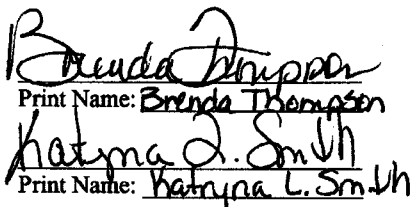 Brenda Thompson
Print Name: Brenda Thompson
Katryna L. Smith
Print Name: Katryna L. Smith